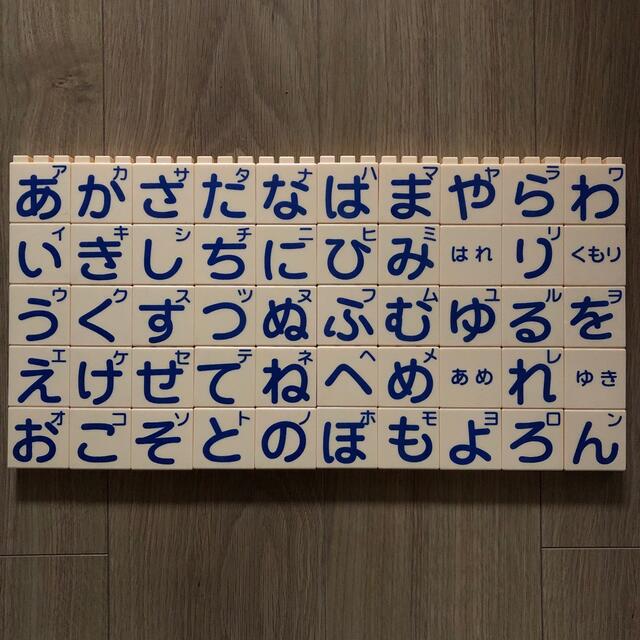 あア かカ さサ たタ なナ はハ まマ やヤ らラ わワ
いイ きキ しシ ちチ にニ ひヒ みミ はれ りリ くもり
うウ くク すス つツ ぬヌ ふフ むム ゆユ るル をヲ
えエ けケ せセ てテ ねネ へヘ めメ あめ れレ ゆき
おオ こコ そソ とト のノ ほホ もモ よヨ ろロ んン